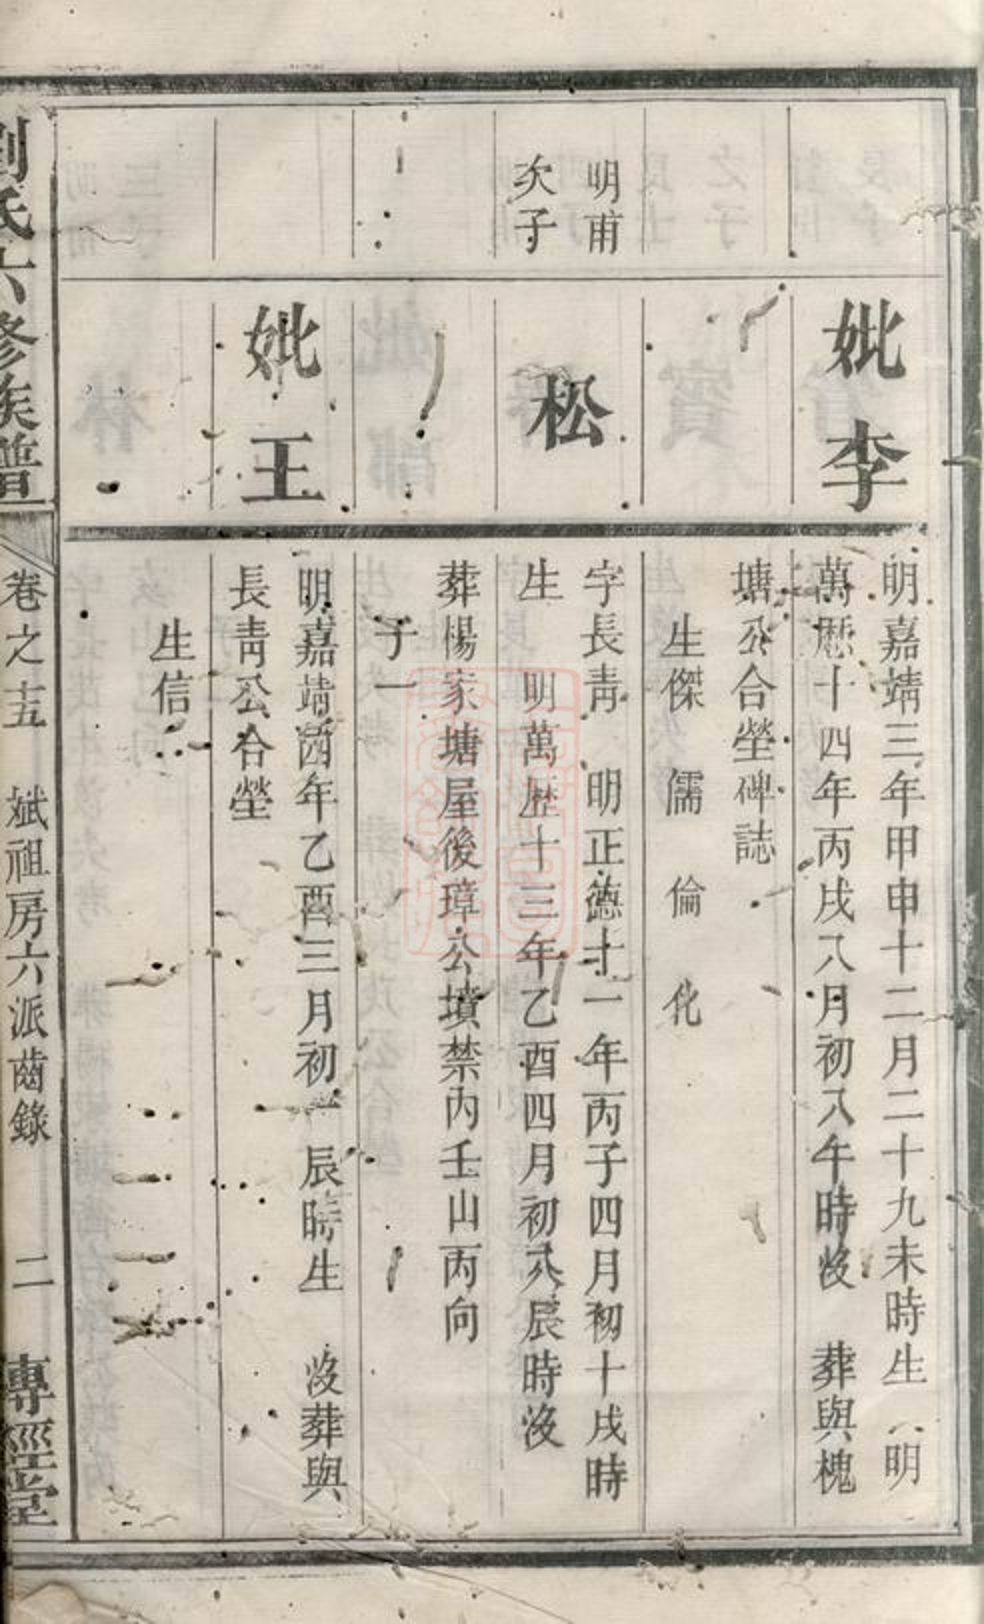 妣李
明嘉靖三年甲申十二月二十九未時生 明
萬歷十四年丙戌八月初八午時沒 葬與槐
塘公合塋碑誌
生傑 儒 倫 化
明甫
次子
松
字長靑 明正德十一年丙子四月初十戌時
生 明萬歷十三年乙酉四月初八辰時沒
葬楊家塘屋後璋公墳禁內壬山丙向
子一
妣王
明嘉靖酉年乙酉三月初一辰時生 沒葬與
長靑公合塋
生信
劉氏六修族譜
卷之十五 斌祖房六派齒錄 二 專經堂